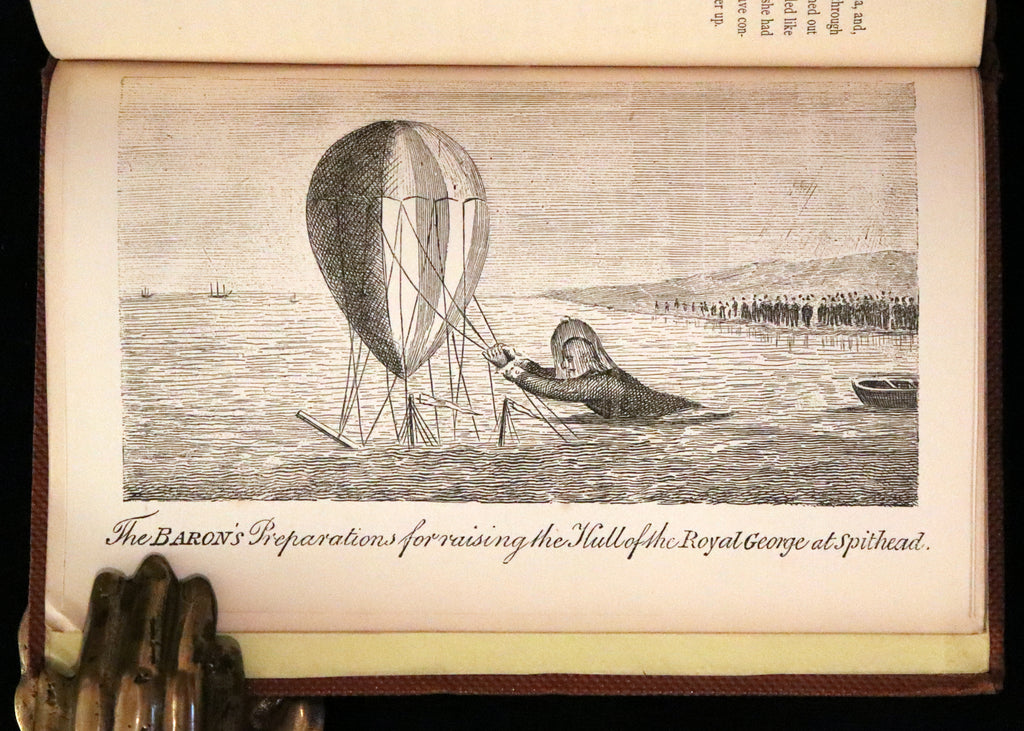 a, and,
through
ned out
led like
she had
ve con-
er up.
The BARON'S Preparations for raising the Hull of the Royal George at Spithead.